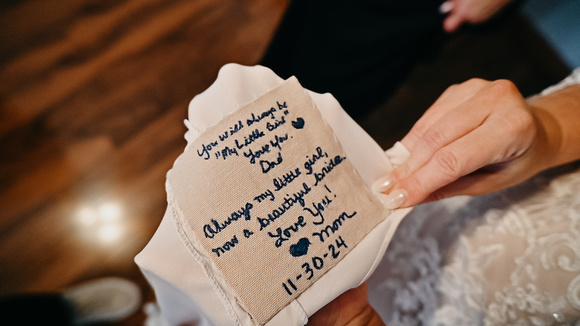 You will always be
"My Little Girl"
Love You.
Dad
Always my little girl,
now a beautiful bride.
Love You!
Mom
11-30-24